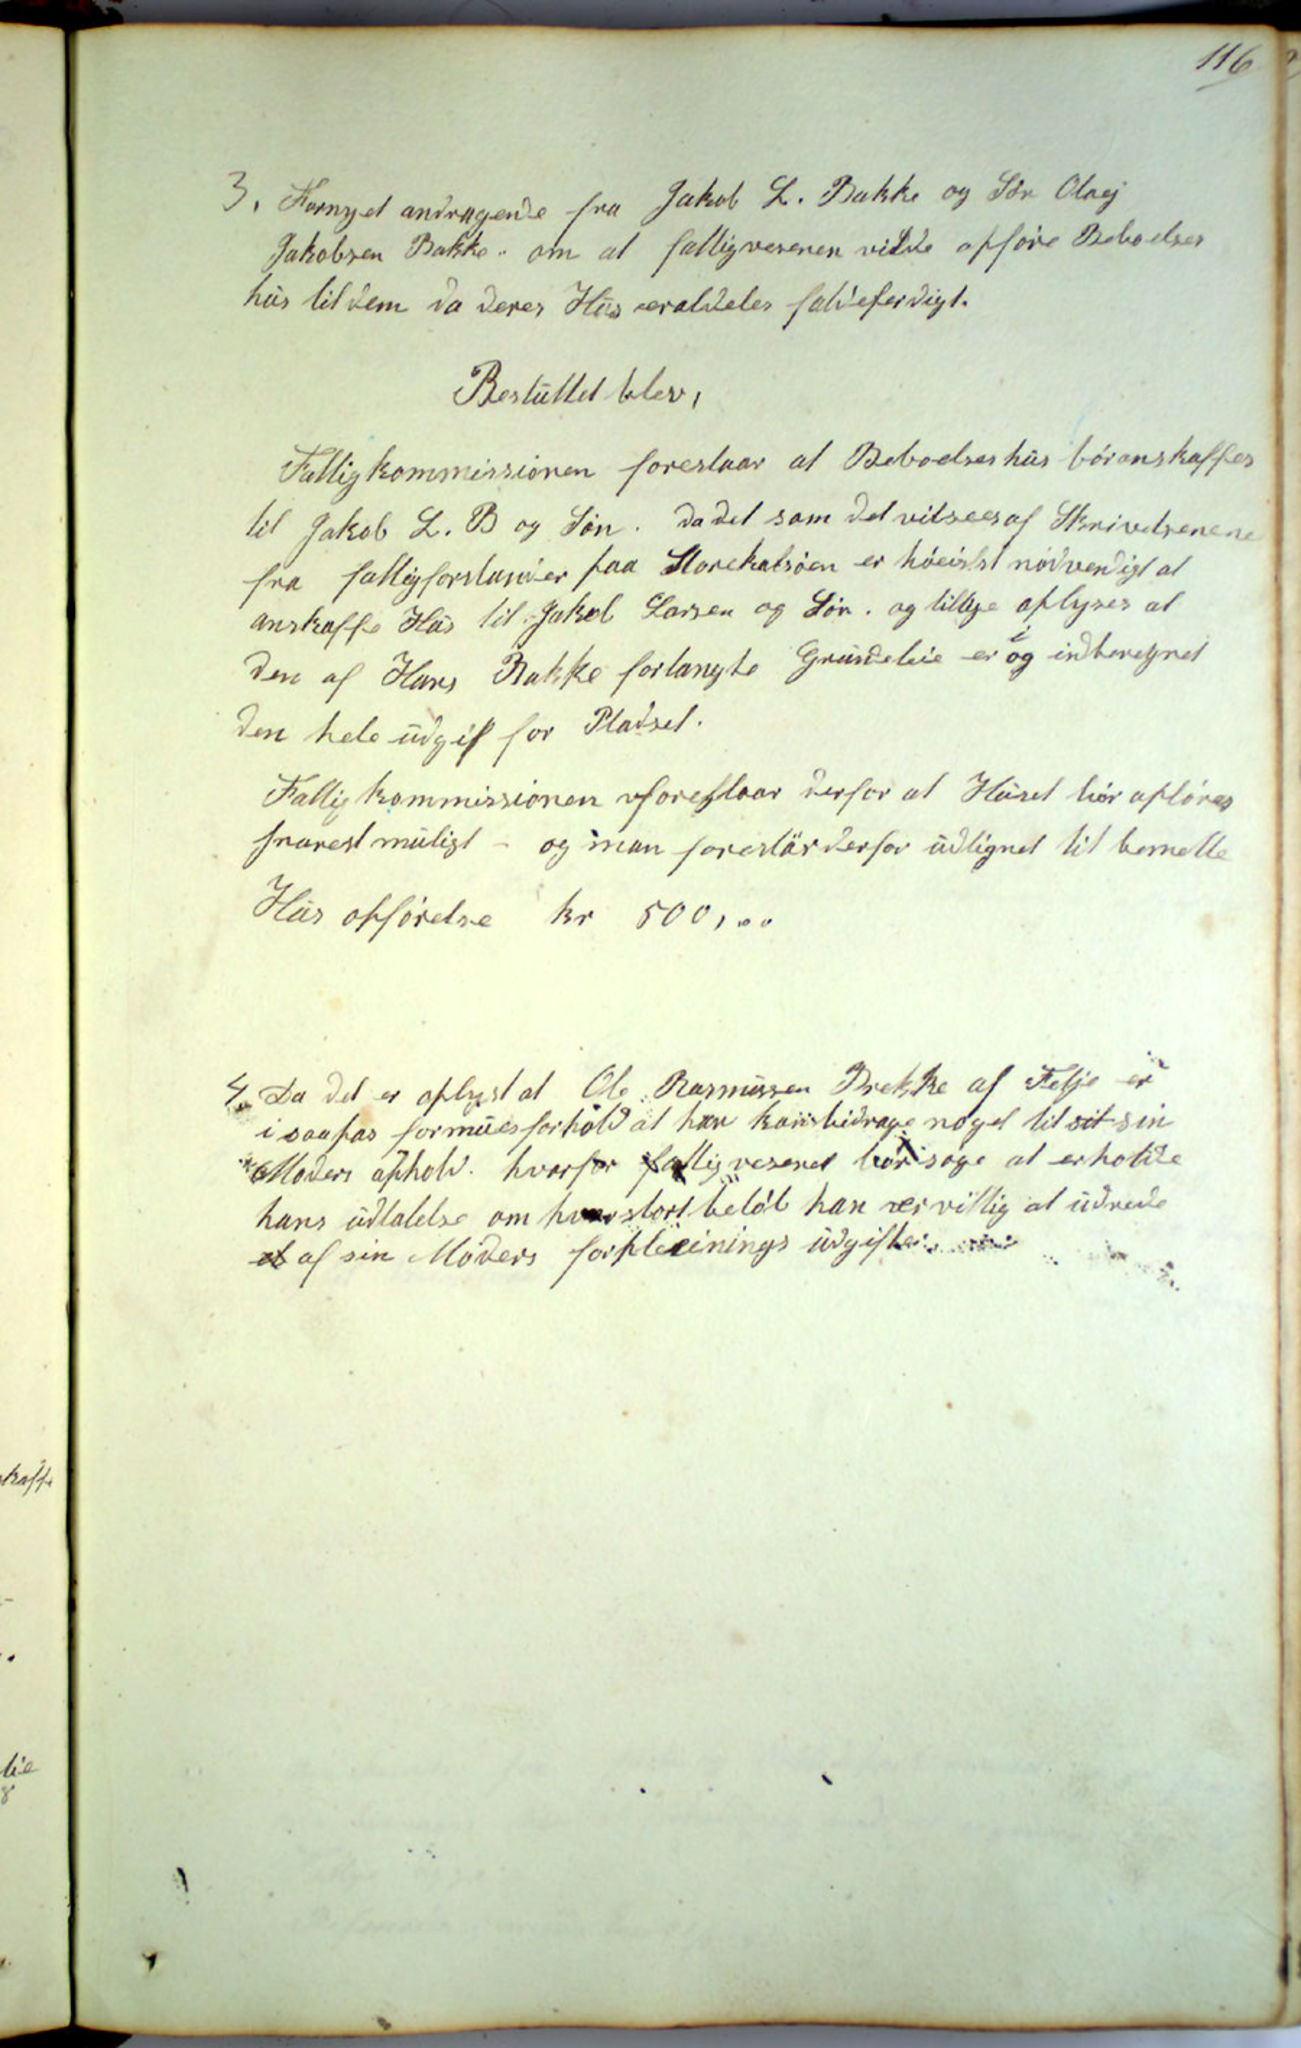 116
3. Fornyet andragende fra Jakob L. Bakke og Sön Olai
Jakobsen Bakke. om at fattigvesenen vilde opföre Beboelses
hüs til dem da deres Hüs er aldeles faldeferdigt.
Besluttet blev,
Fattigkommissionen foreslaar at Beboelseshüs bör anskaffes
til Jakob L. B og Sön. da det som det vilsees af Skrivelsenene
fra fattigforstander paa Storekalsöen er höeist nödvendigt at
anskaffe Hüs til Jakob Larsen og Sön. og tillige oplyses at
den af Hans Bakke forlangte Gründeleie er og i indberegnet
den hele üdgift for Pladset.
Fattigkommissionen foreslaar derfor at Hüset bör opföres
snarest müligt - og man foreslår derfor üdlignet til bemelte
Hüs opförelse kr 500,00
4. Da det er oplyst at Ole Rasmüssen Drekke af Felje er
i saapas formüesforhold at han kan bidrage noget til sit sin
Moders ophold. hvorfor fattigvesenet bör söge at erholde
hans üdtalelse om hvor stort belöb han er villig at üdrede
af sin Moders forpleinings üdgifter.
kaffe
lie
8